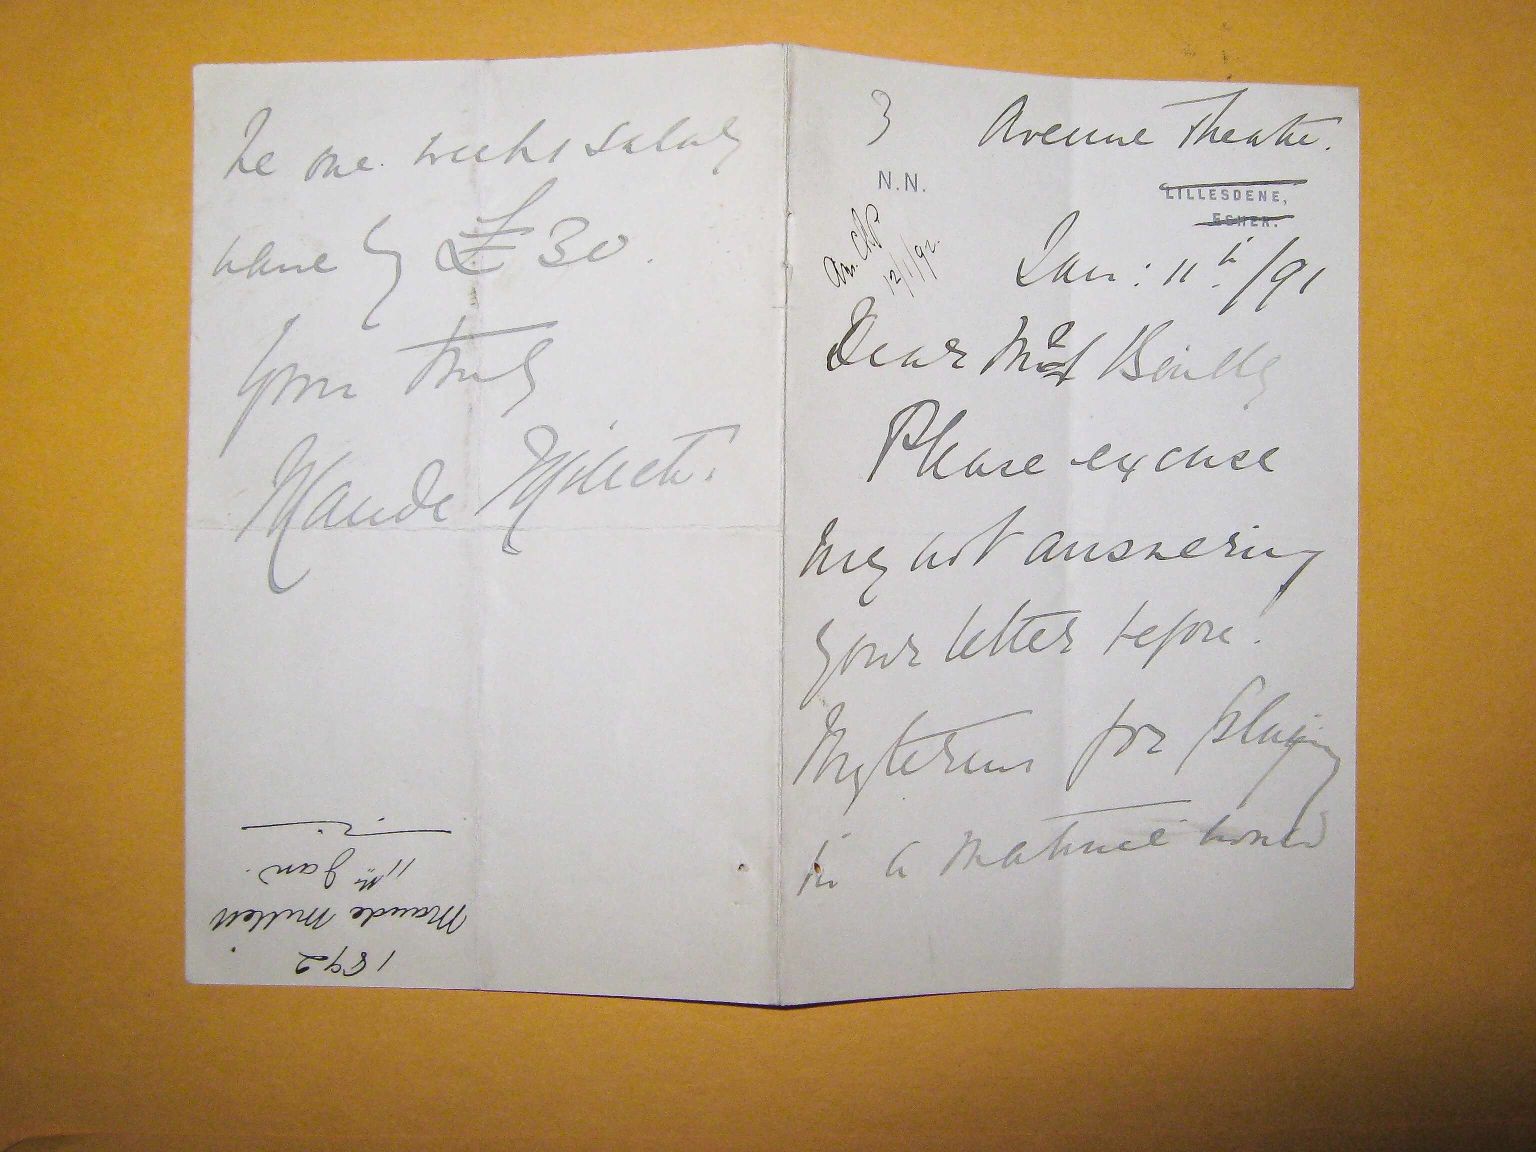 3 Avenue Theatre.
N.N.
LILLESDENE,
ESHER.
Jan: 11th/91
12/1/92.
Dear Mrs
Please excuse
my not answering
your letter before.
My terms for playing
in a matineé would
be one weeks salary
£30.
Yours truly
Maude Millett.
1892
Maude Millett
11th Jan.